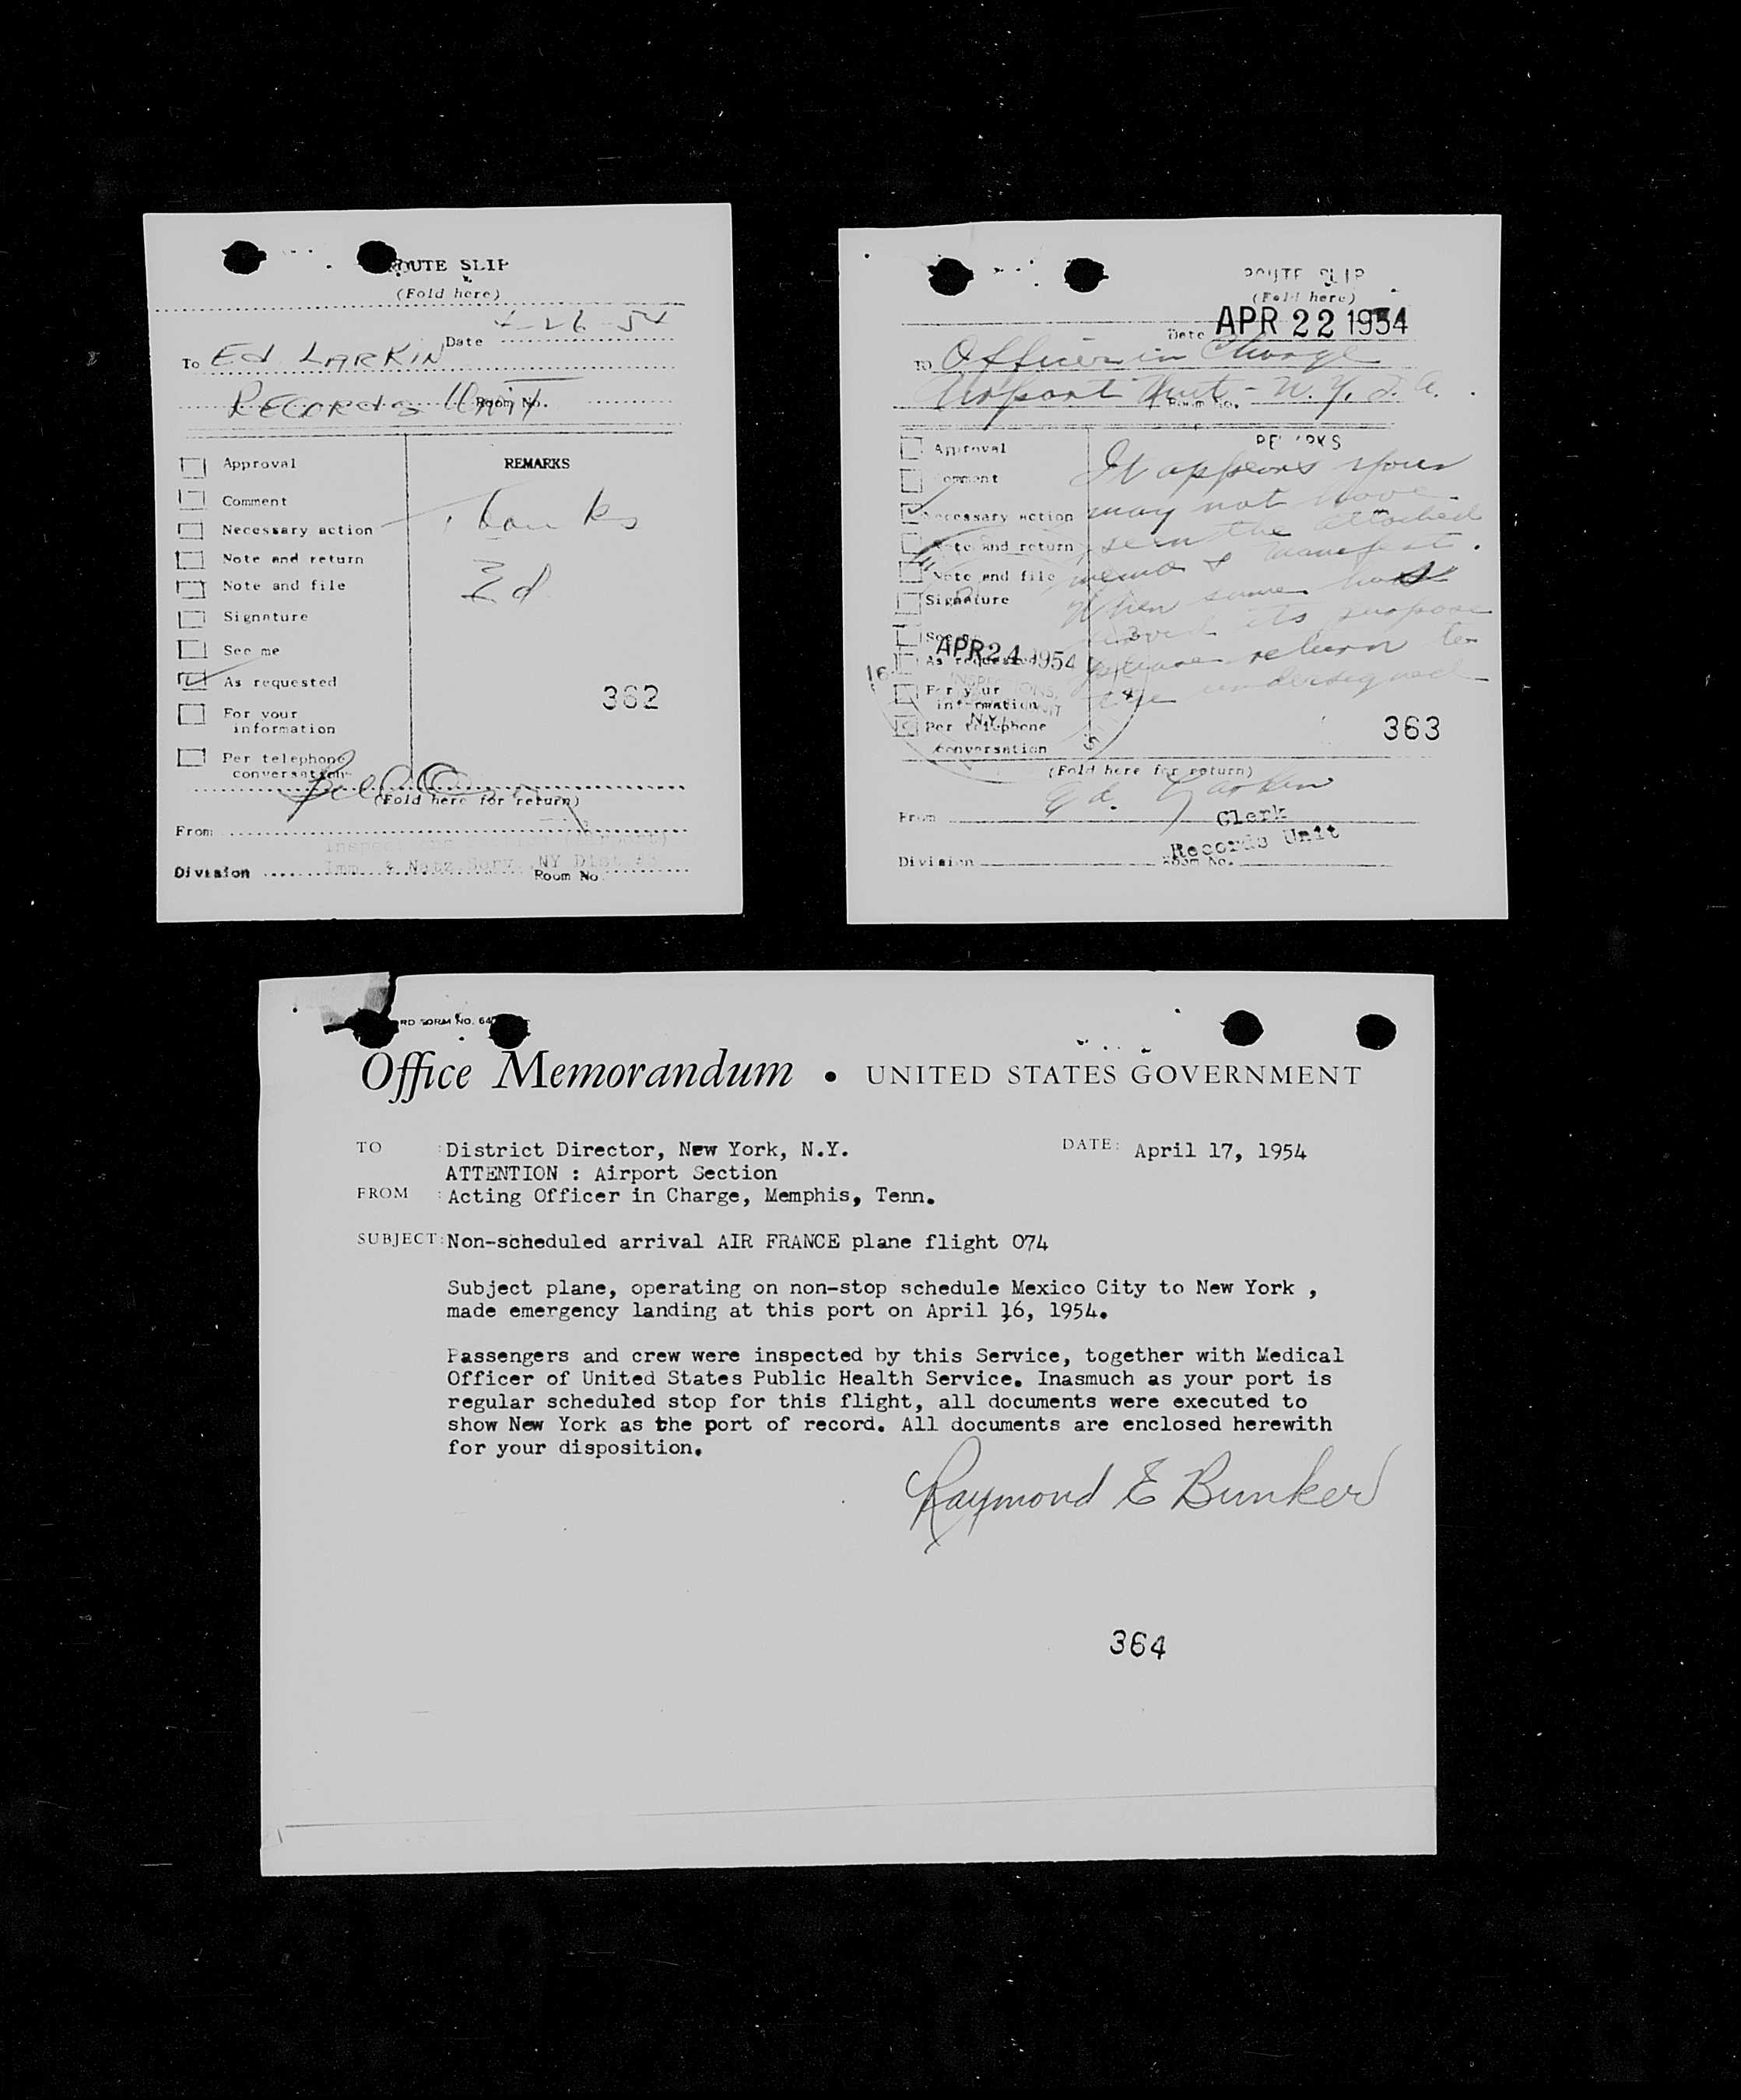 ROUTE SLIP
(Fold here)
Date 4-26-54
To Ed LARKIN
RECORDS Unit Room No.
REMARKS
Approval
Comment
Necessary action
Note and return
Note and file
Signature
See me
As requested
For your
information
Per telephone
conversation
Thanks
Ed
362
(Fold here for return)
From
Inspections
Imm. & Natz Serv. NY Dist.
Division Room No.
ROUTE SLIP
(Fold here)
Date APR 22 1954
To Officer in Charge
Airport Unit - N.Y. Room No.
REMARKS
Approval
Comment
Necessary action
Note and return
Note and file
Signature
See me
As requested
For your
information
Per telephone
conversation
It appears your
may not have
seen the attached
memo & manifest.
When same has
served its purpose
please return to
the undersigned
APR 24 1954
363
(Fold here for return)
From Ed. Larkin
Clerk
Records Unit
Division Room No.
RD FORM NO. 64
Office Memorandum • UNITED STATES GOVERNMENT
TO : District Director, New York, N.Y. DATE: April 17, 1954
ATTENTION : Airport Section
FROM : Acting Officer in Charge, Memphis, Tenn.
SUBJECT: Non-scheduled arrival AIR FRANCE plane flight 074
Subject plane, operating on non-stop schedule Mexico City to New York ,
made emergency landing at this port on April 16, 1954.
Passengers and crew were inspected by this Service, together with Medical
Officer of United States Public Health Service. Inasmuch as your port is
regular scheduled stop for this flight, all documents were executed to
show New York as the port of record. All documents are enclosed herewith
for your disposition.
Raymond E Bunker
364